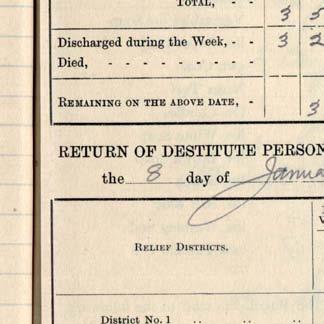 TOTAL, - - 3 5
Discharged during the Week, - - 3 2
Died, - - - - - - -
REMAINING ON THE ABOVE DATE, - 3
RETURN OF DESTITUTE PERSON
the 8 day of Janua
RELIEF DISTRICTS.
District No. 1 .. .. ..